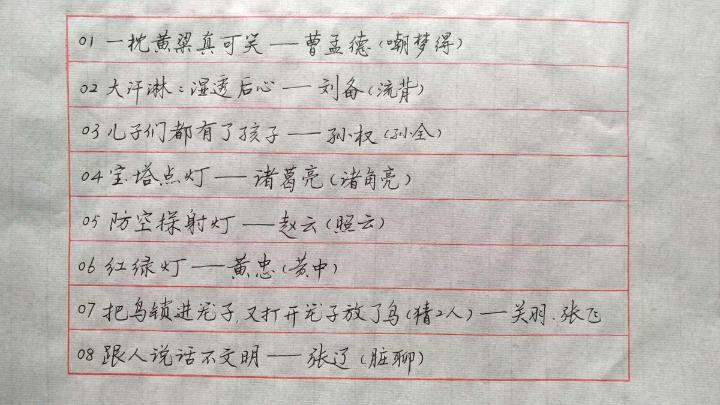 01 一枕黄粱真可笑——曹孟德(嘲梦得)
02 大汗淋:湿透后心——刘备(流背)
03 儿子们都有了孩子——孙权(孙全)
04 宝塔点灯——诸葛亮(诸角亮)
05 防空探射灯——赵云(照云)
06 红绿灯——黄忠(黄中)
07 把鸟锁进笼子,又打开笼子放了鸟(猜2人)——关羽.张飞
08 跟人说话不文明——张辽(脏聊)